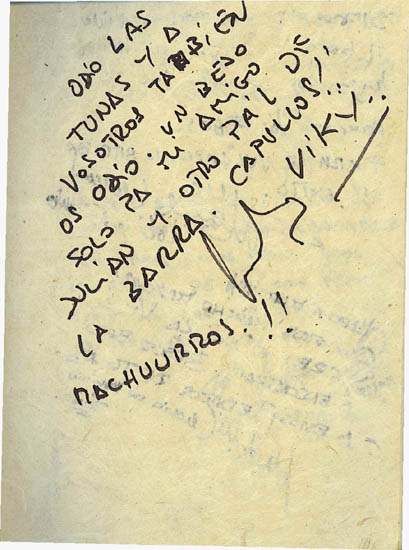 ODIO LAS
TUNAS Y A
VOSOTROS TAMBIÉN
OS ODIO. UN BESO
SOLO PA MI AMIGO
JULIÁN Y OTRO PA'L DE
LA BARRA. CAPULLOS!!
VIKY..
MACHUURROS.!!